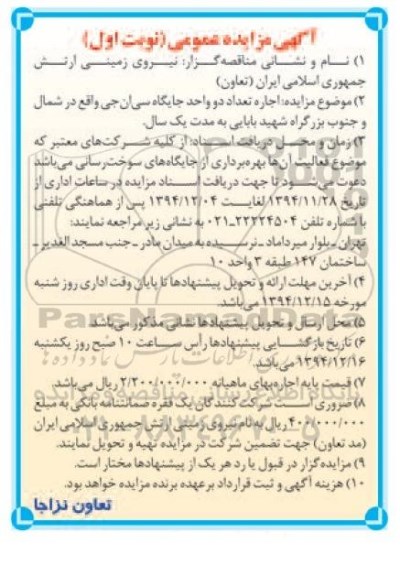 آگهی مزایده عمومی (نوبت اول)
۱) نام و نشانی مناقصه‌گزار: نیروی زمینی ارتش
جمهوری اسلامی ایران (تعاون)
۲) موضوع مزایده: اجاره تعداد دو واحد جایگاه سی‌ان‌جی واقع در شمال
و جنوب بزرگراه شهید بابایی به مدت یک سال.
۳) زمان و محل دریافت اسناد: از کلیه شرکت‌های معتبر که
موضوع فعالیت آن‌ها بهره‌برداری از جایگاه‌های سوخت‌رسانی می‌باشد
دعوت می‌شود تا جهت دریافت اسناد مزایده در ساعات اداری از
تاریخ ۱۳۹۴/۱۱/۲۸ لغایت ۱۳۹۴/۱۲/۰۴ پس از هماهنگی تلفنی
با شماره تلفن ۲۲۲۲۴۵۰۴-۰۲۱ به نشانی زیر مراجعه نمایند:
تهران ـ بلوار میرداماد ـ نرسیده به میدان مادر ـ جنب مسجد الغدیر ـ
ساختمان ۱۴۷ طبقه ۳ واحد ۱۰
۴) آخرین مهلت ارائه و تحویل پیشنهادها تا پایان وقت اداری روز شنبه
مورخه ۱۳۹۴/۱۲/۱۵ می‌باشد.
۵) محل ارسال و تحویل پیشنهادها نشانی مذکور می‌باشد.
۶) تاریخ بازگشایی پیشنهادها رأس ساعت ۱۰ صبح روز یکشنبه
۱۳۹۴/۱۲/۱۶ می‌باشد.
۷) قیمت پایه اجاره‌بهای ماهیانه ۲/۲۰۰/۰۰۰/۰۰۰ ریال می‌باشد.
۸) ضروری است شرکت کنندگان یک فقره ضمانتنامه بانکی به مبلغ
۴۰۰/۰۰۰/۰۰۰ ریال به نام نیروی زمینی ارتش جمهوری اسلامی ایران
(مد تعاون) جهت تضمین شرکت در مزایده تهیه و تحویل نمایند.
۹) مزایده‌گزار در قبول یا رد هر یک از پیشنهادها مختار است.
۱۰) هزینه آگهی و ثبت قرارداد بر عهده برنده مزایده خواهد بود.
تعاون نزاجا
ParsNamadData